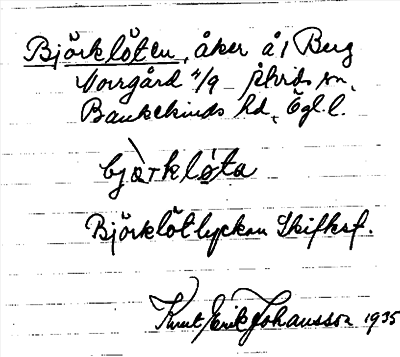 Björklöten, åker å 1 Berg
Norrgård 4/9 sn,
Bankekinds hd, Ögl. l.
bjærkløta
Björklötlyckan Skifksf.
Knut Erik Johansson 1935